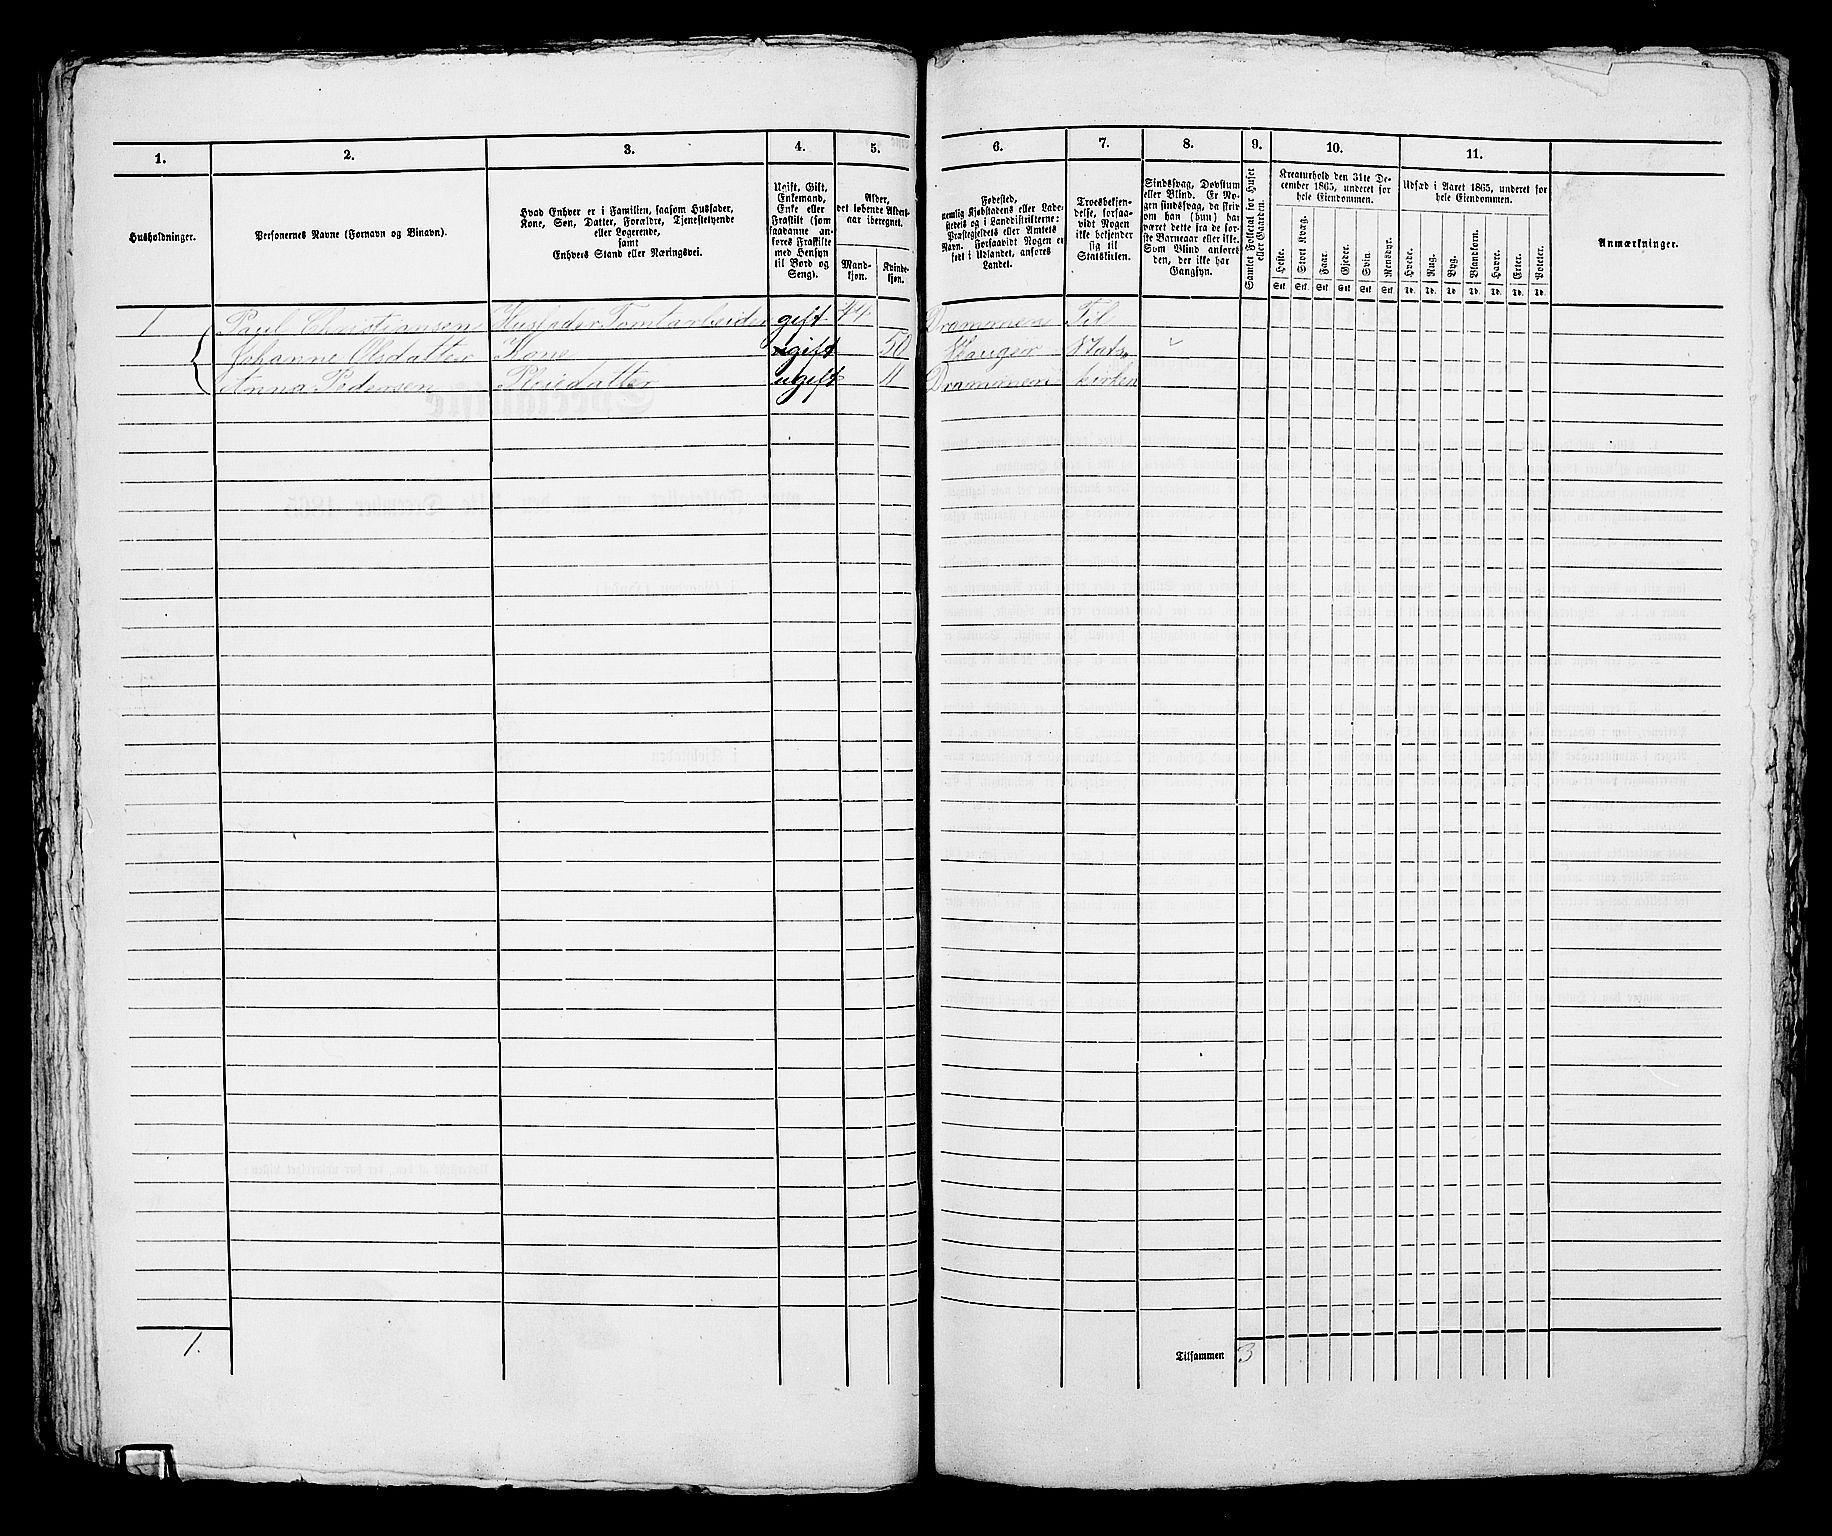 1. 2. 3. 4. 5. 6. 7. 8. 9. 10. 11.
Husholdninger.
Personernes Navne (Fornavn og Binavn).
Hvad Enhver er i Familien, saasom Husfader,
Kone, Søn, Datter, Forældre, Tjenestetyende
eller Logerende,
samt
Enhvers Stand eller Næringsvei.
Ugift, Gift,
Enkemand,
Enke eller
Fraskilt (som
saadanne an-
føres Fraskilte
med Hensyn
til Bord og
Seng).
Alder,
det løbende Alders-
aar iberegnet.
Mand-
kjøn.
Kvinde-
kjøn.
Fødested,
nemlig Kjøbstadens eller Lade-
stedets og i Landdistrikterne:
Præstegjeldets eller Amtets
Navn. Forsaavidt Nogen er
født i Udlandet, anføres
Landet.
Troesbekjen-
delse, forsaa-
vidt Nogen
ikke bekjender
sig til
Statskirken.
Sindssvag, Døvstum
eller Blind. Er No-
gen sindssvag, da skriv
om han (hun) har
været dette fra de før-
ste Barneaar eller ikke.
Som Blind anføres
den, der ikke har
Gangsyn.
Samlet Folketal for Huset
eller Gaarden.
Kreaturhold den 31te De-
cember 1865, underet for
hele Eiendommen.
Heste. Stort Kvæg. Faar. Gjeder. Svin. Rensdyr.
Stk. Stk. Stk. Stk. Stk. Stk.
Udsæd i Aaret 1865, underet for
hele Eiendommen.
Hvede. Rug. Byg. Blandkorn. Havre. Erter. Poteter.
Td. Td. Td. Td. Td. Td. Td.
Anmærkninger.
1 Paul Christiansen Husfader Tomtarbeider gift 44 Drammen Til
Johanne Olsdatter Kone gift 50 Stats
Anna Pedersen Pleiedatter ugift 11 Drammen kirken
1.
Tilsammen 3